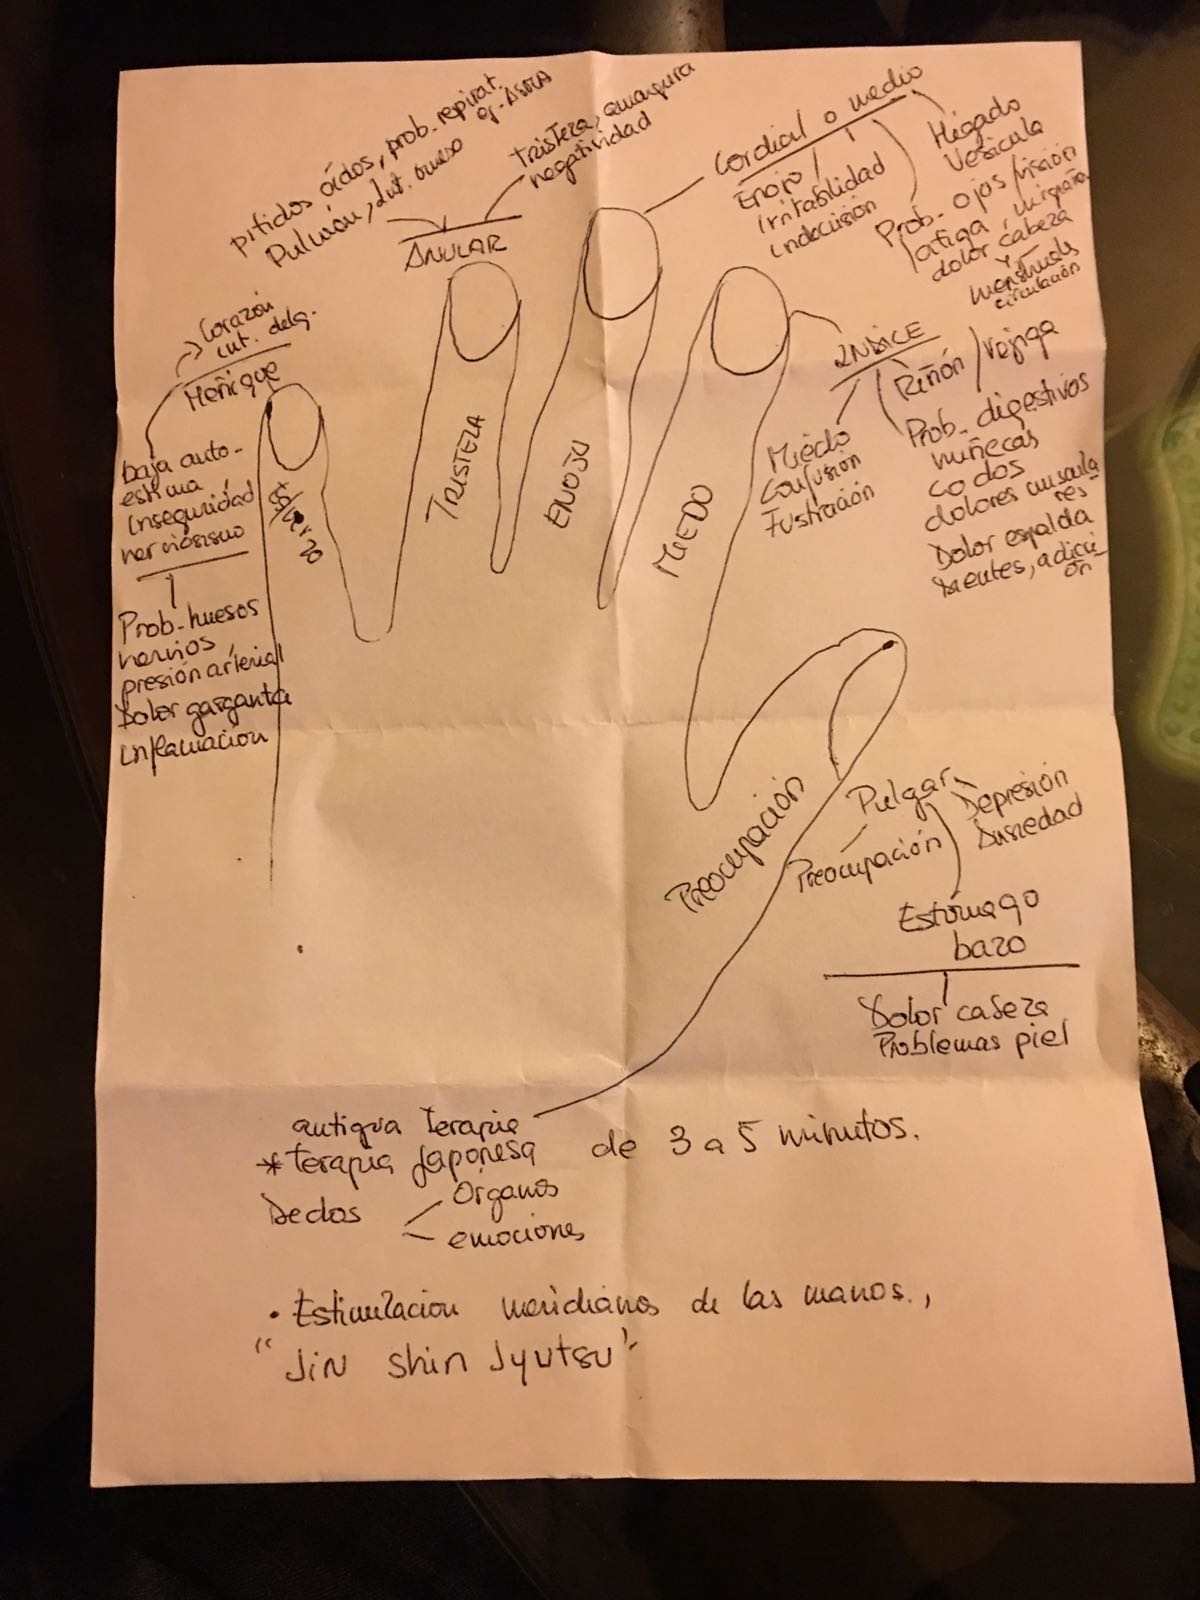 pitidos oídos, prob. respirat.
ej. ASMA
Pulmón, Int. grueso
Tristeza, amargura
negatividad
ANULAR
Cordial o medio
Enojo
Irritabilidad
indecisión
Hígado
Vesícula
Prob. ojos/visión
fatiga, migraña
dolor cabeza
y
menstruals
circulación
Corazón
int. delg.
Meñique
baja auto-
estima
inseguridad
nerviosismo
Prob. huesos
nervios
presión arterial
Dolor garganta
inflamación
esfuerzo
TRISTEZA
ENOJO
MIEDO
INDICE
Miedo
Confusión
Fustración
Riñón/vejiga
Prob. digestivos
muñecas
codos
dolores muscula
res
Dolor espalda
Dientes, adicci
ón
Preocupación
Pulgar
Preocupación
Depresión
Ansiedad
Estómago
bazo
Dolor cabeza
Problemas piel
antigua terapia
* terapia Japonesa de 3 a 5 minutos.
Dedos
Órganos
emociones
• Estimulacion meridianos de las manos.,
"Jin Shin Jyutsu"